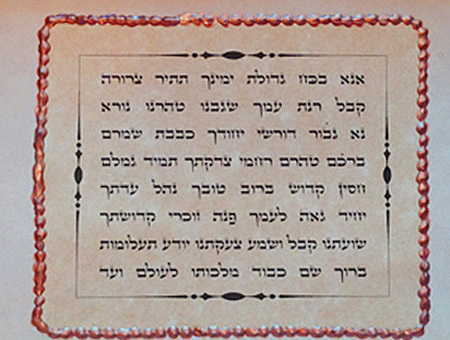 אנא בכח גדולת ימינך תתיר צרורה
קבל רנת עמך שגבנו טהרנו נורא
נא גבור דורשי יחודך כבבת שמרם
ברכם טהרם רחמי צדקתך תמיד גמלם
חסין קדוש ברוב טובך נהל עדתך
יחיד גאה לעמך פנה זוכרי קדושתך
שועתנו קבל ושמע צעקתנו יודע תעלומות
ברוך שם כבוד מלכותו לעולם ועד